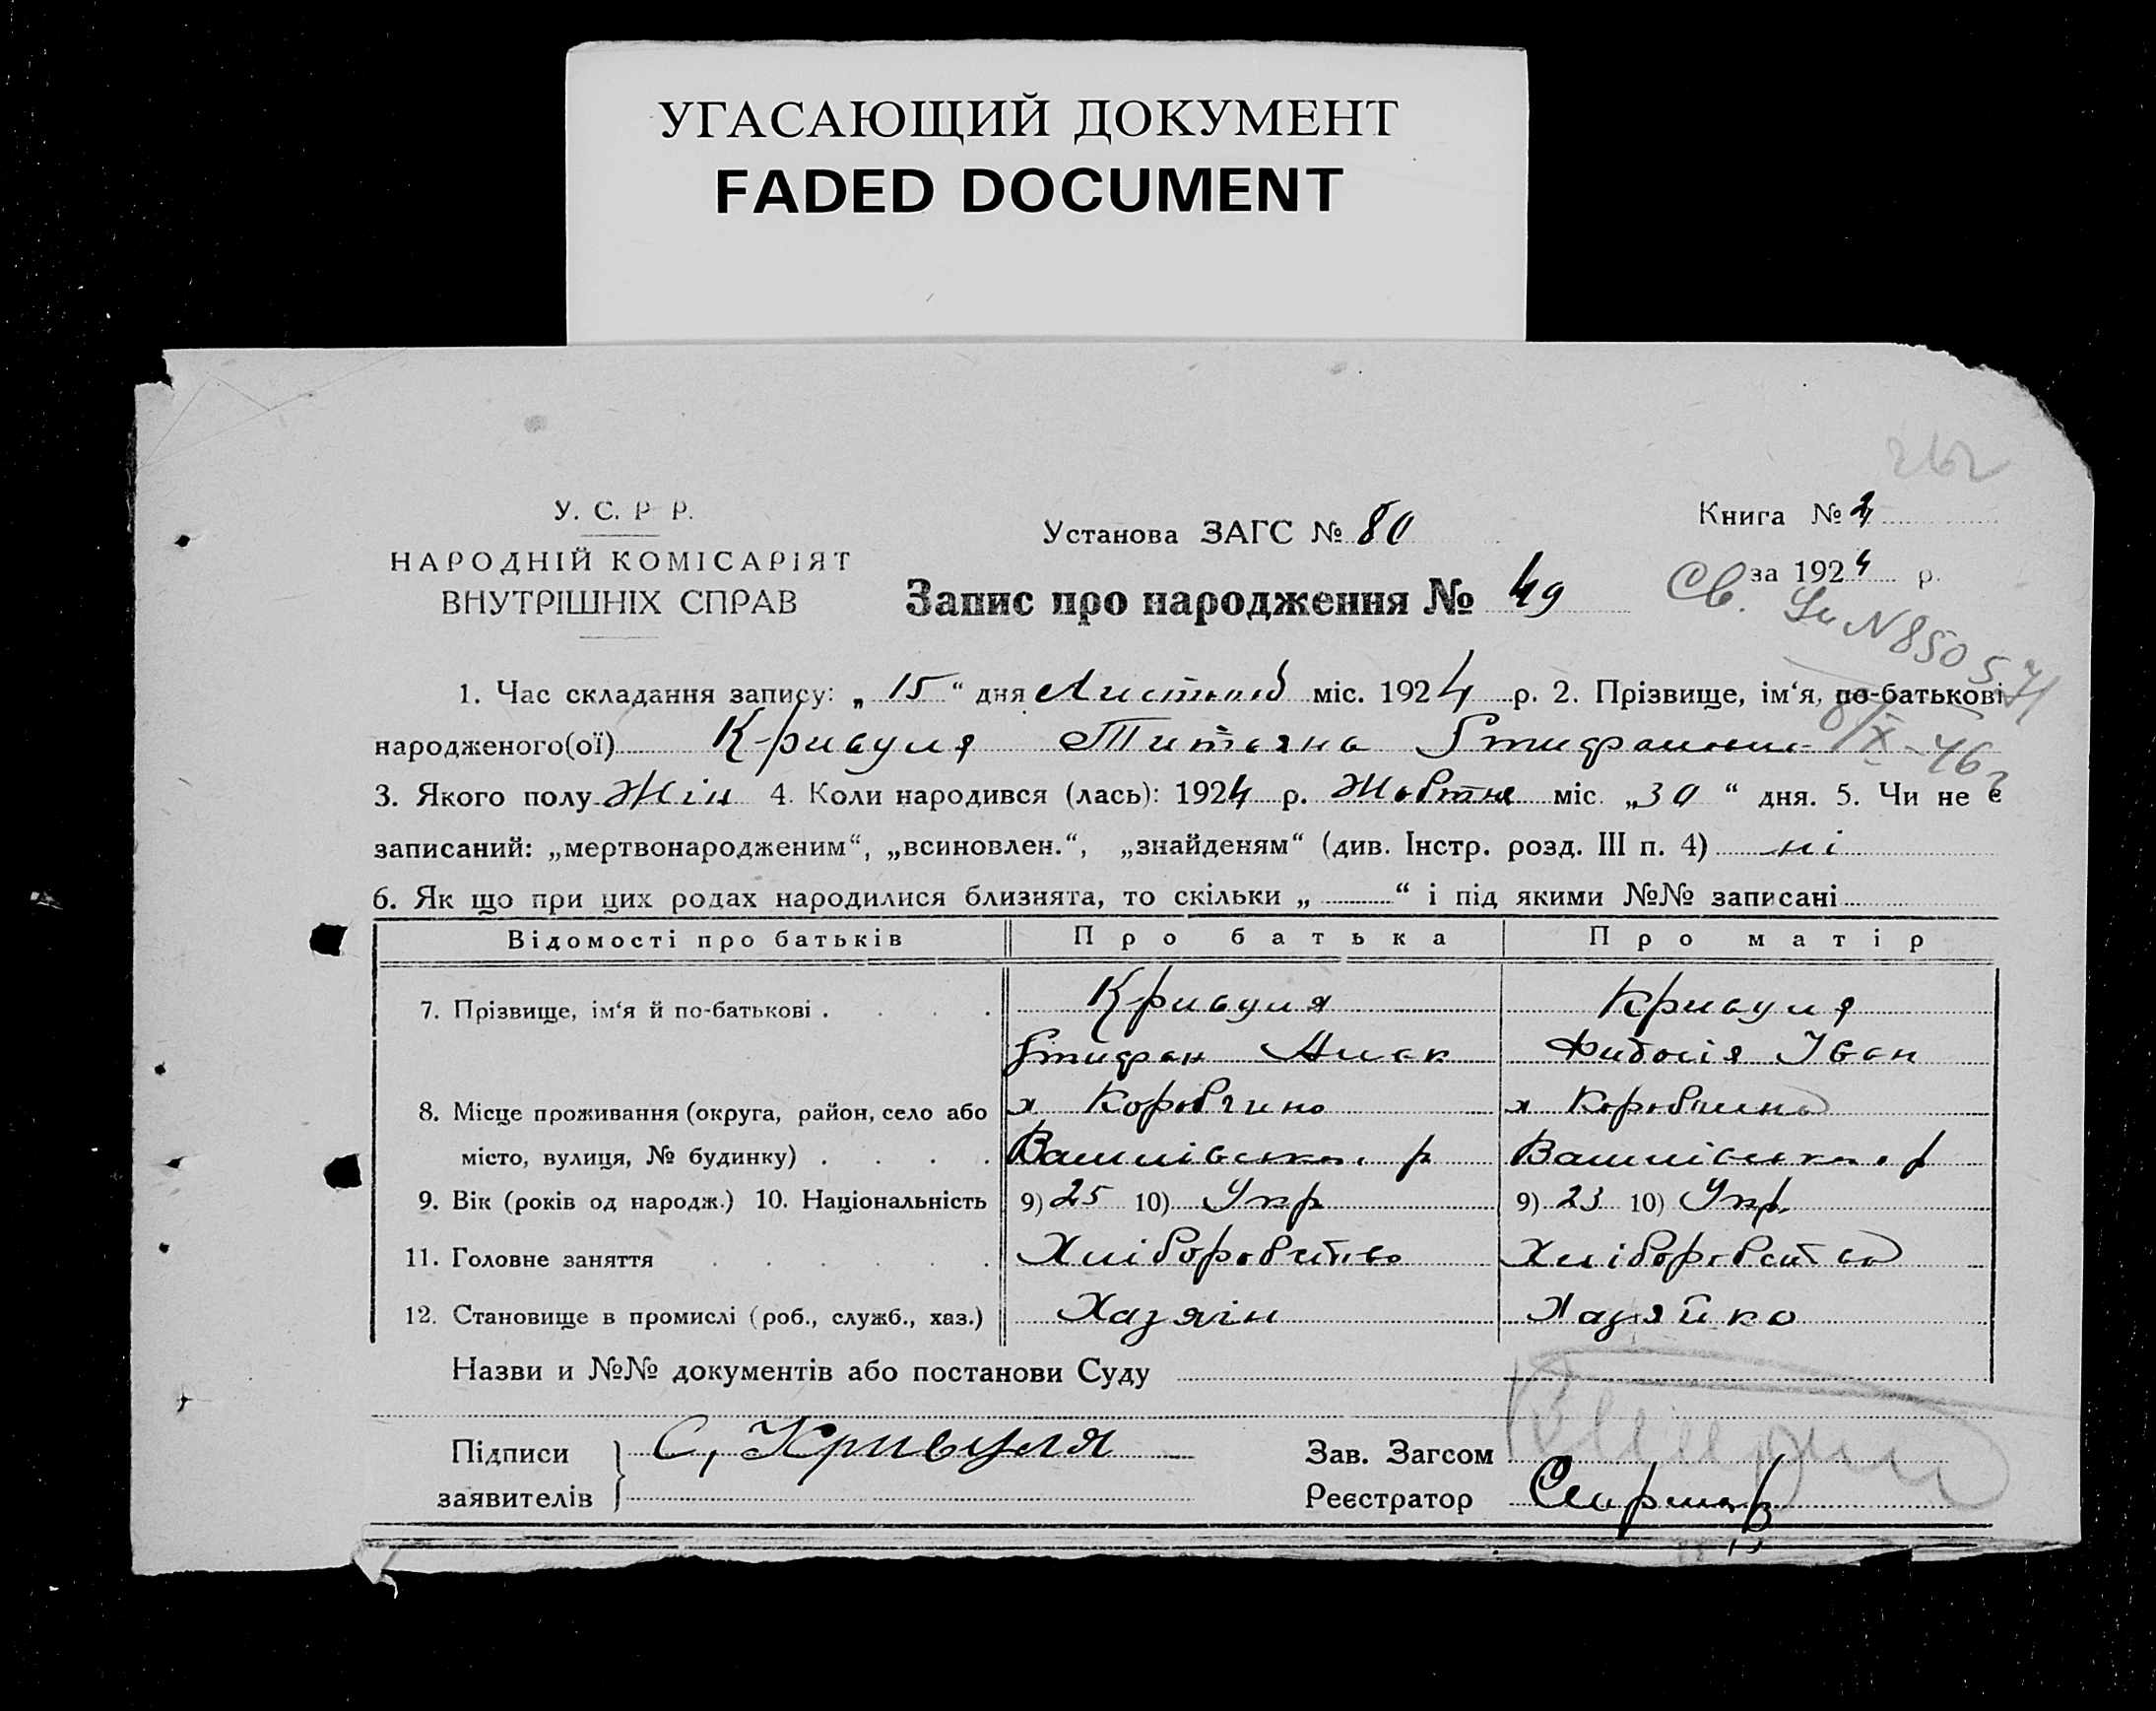 УГАСАЮЩИЙ ДОКУМЕНТ
FADED DOCUMENT
262
У. С. Р Р.
НАРОДНІЙ КОМІСАРІЯТ
ВНУТРІШНІХ СПРАВ
Установа ЗАГС № 80
Запис про народження № 49
Книга № 2
за 1924 р.
Св. N 850571
8/IX-46 г
1. Час складання запису: „ 15 “ дня Листопад міс. 1924 р. 2. Прізвище, ім‘я, по-батькові
народженого(ої) Кривуля Титьяна Стифановна
3. Якого полу Жін 4. Коли народився (лась): 1924 р. Жовтня міс. „30 “ дня. 5. Чи не є
записаний: „мертвонародженим“, „всиновлен.“, „знайденям“ (див. Інстр. розд. III п. 4) ні
6. Як що при цих родах народилися близнята, то скільки „ “ і під якими №№ записані
Відомості про батьків Про батька Про матір
7. Прізвище, ім‘я й по-батькові . Кривуля Кривуля
Стифан Фидосія Іван
8. Місце проживання (округа, район, село або х Коробчино х Коробчино
місто, вулиця, № будинку) . р р
9. Вік (років од народж.) 10. Національність 9) 25 10) Укр 9) 23 10) Укр
11. Головне заняття Хліборобство Хліборобство
12. Становище в промислі (роб., служб., хаз.) Хазяін Хазяйка
Назви и №№ документів або постанови Суду
Підписи С, Кривуля Зав. Загсом
заявителів Реєстратор